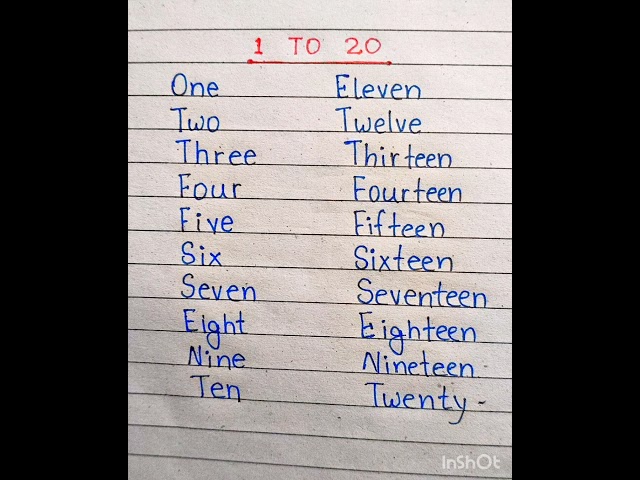 1 TO 20
One Eleven
Two Twelve
Three Thirteen
Four Fourteen
Five Fifteen
Six Sixteen
Seven Seventeen
Eight Eighteen
Nine Nineteen
Ten Twenty
InShOt